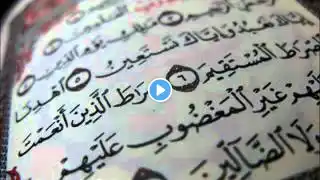 إِيَّاكَ نَعْبُدُ وَإِيَّاكَ نَسْتَعِينُ ٥ اهْدِنَا
الصِّرَاطَ الْمُسْتَقِيمَ ٦ صِرَاطَ الَّذِينَ أَنْعَمْتَ
عَلَيْهِمْ غَيْرِ الْمَغْضُوبِ عَلَيْهِمْ
وَلَا الضَّالِّينَ